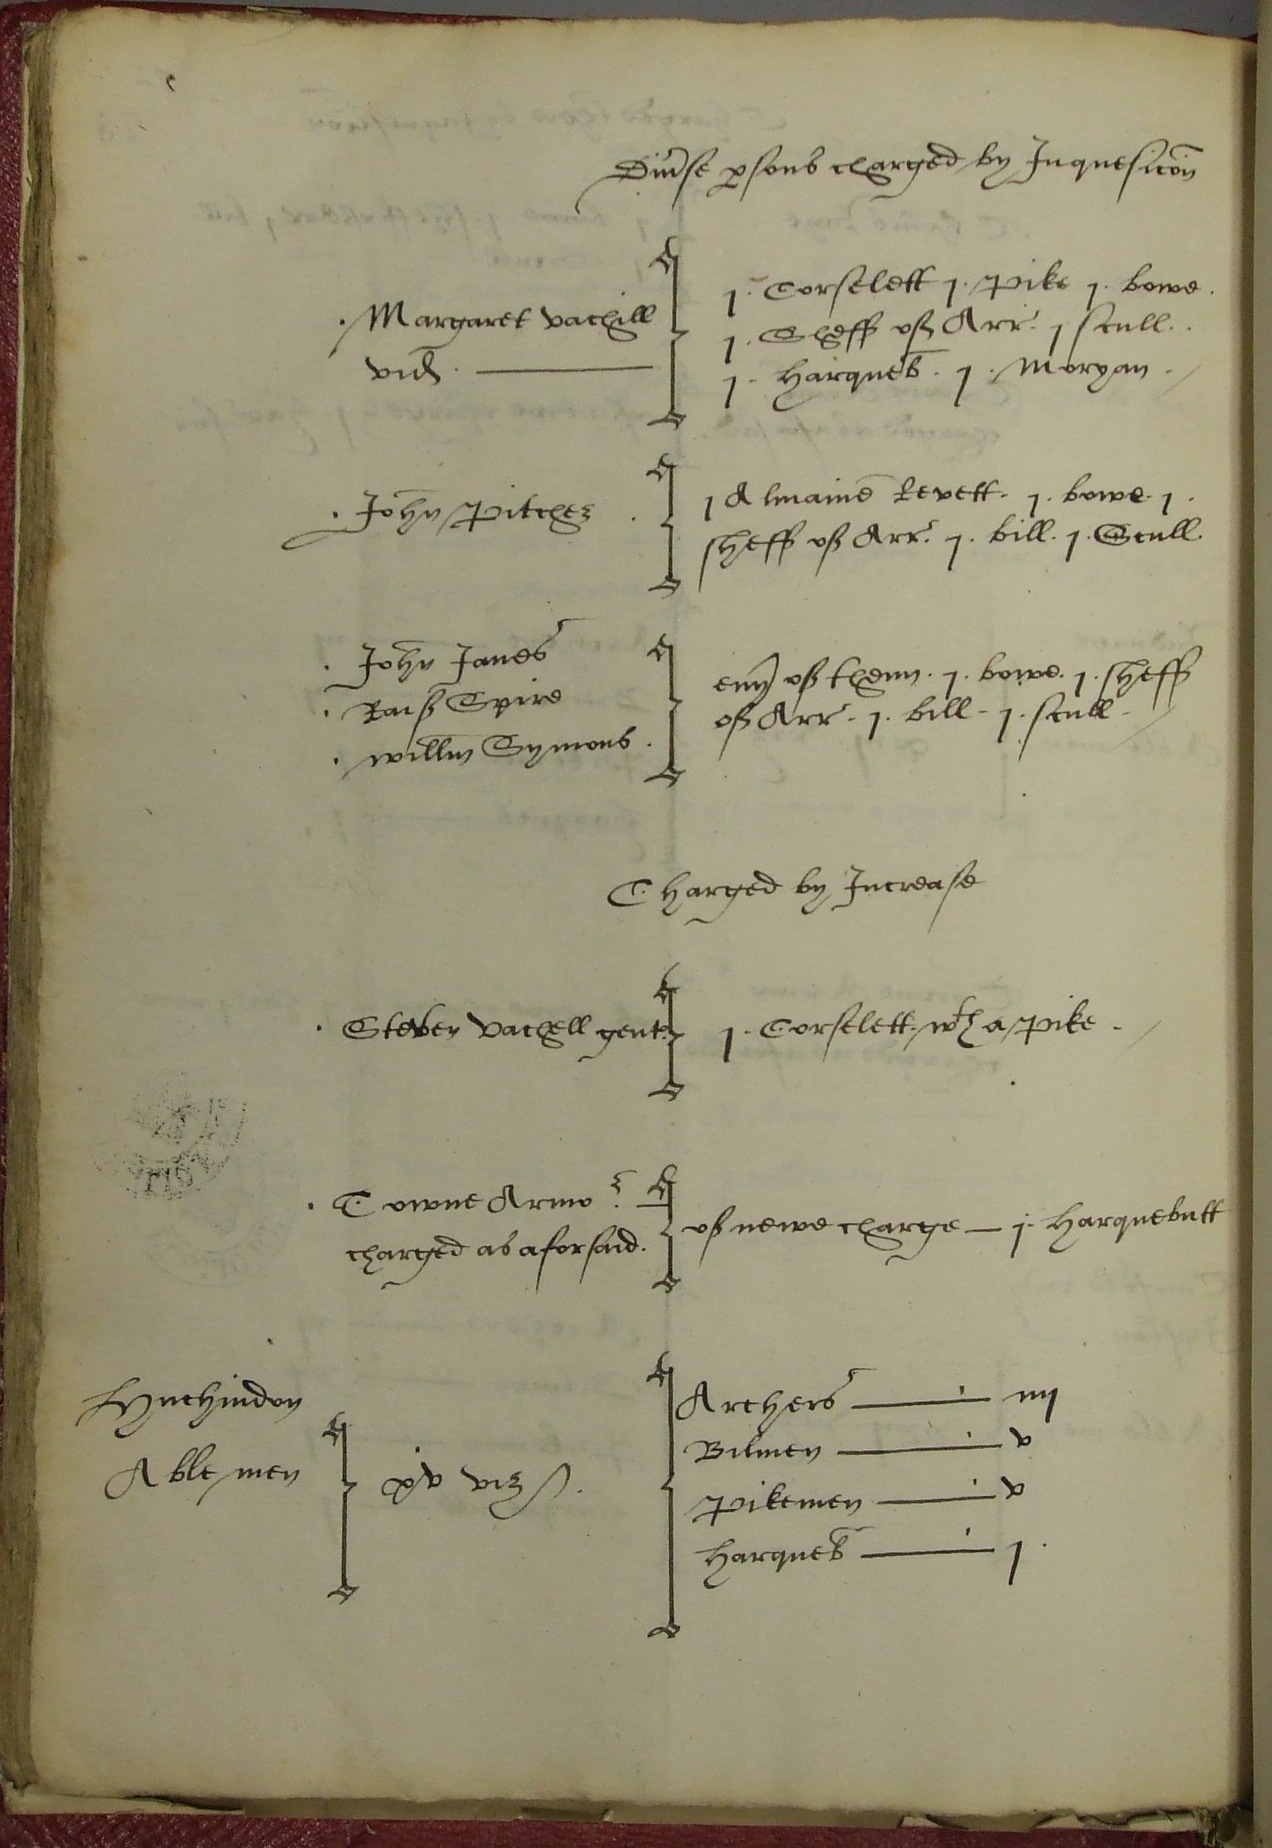 Diu'se p'sons charged by Inquesicon
Margaret Vachill
vid.
j. Corselett j. Pike j. bowe.
j. Sheff off Arr. j scull.
j. harqueb. j. Moryan.
John Pitches
j Almaine Revett. j. bowe. j.
sheff off Arr. j. bill. j. Scull.
John Janes
Raiff Spire
Willm Symons.
eu'y off them. j. bowe. j. sheff
off Arr. j. bill. j. scull.
Charged by Increase
Steven Vachell gent.
j. Corselett wth a Pike.
Towne Armo
charged as aforsaid.
off newe charge j. Harquebutt
Hynchindon
Able men
xv viz.
Archers iiij
Bilmen v
Pikemen v
Harqueb j.